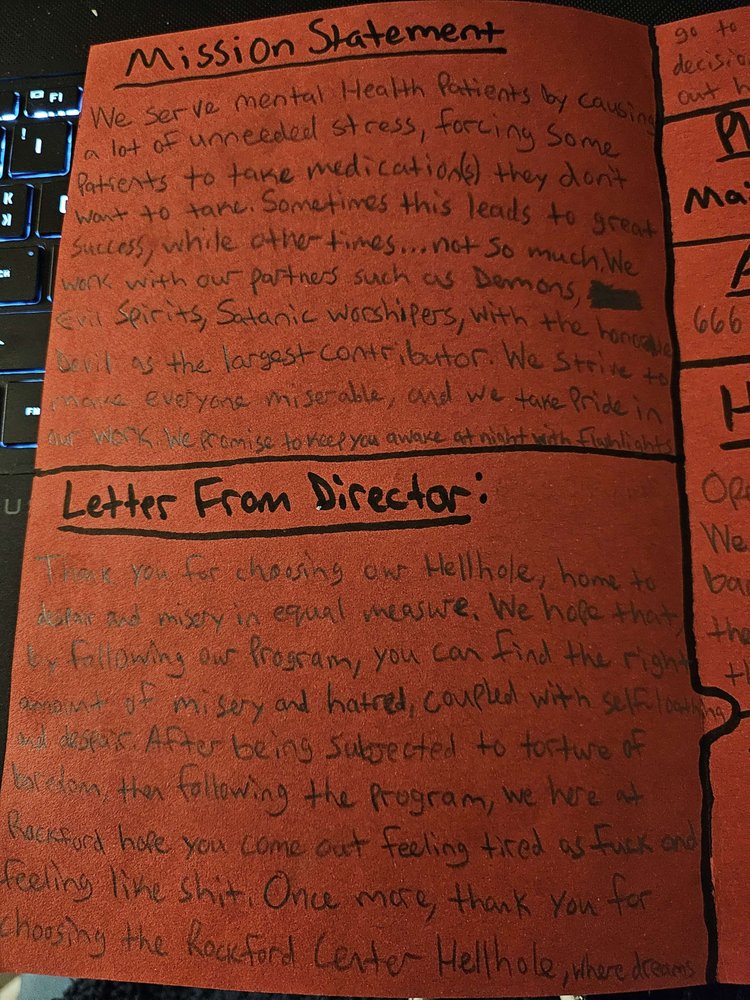 Mission Statement
We serve mental Health Patients by causing
a lot of unneeded stress, forcing some
Patients to take medication(s) they don't
want to take. Sometimes this leads to great
success, while other times...not so much. We
work with our partners such as Demons,
Evil Spirits, Satanic worshipers, with the honorable
Devil as the largest contributor. We strive to
make everyone miserable, and we take Pride in
our work. We promise to keep you awake at night with flashlights
Letter From Director:
Thank you for choosing our Hellhole, home to
despair and misery in equal measure. We hope that,
by following our Program, you can find the right
amount of misery and hatred, coupled with self loathing
and despair. After being subjected to torture of
boredom, then following the program, we here at
Rockford hope you come out feeling tired as fuck and
feeling like shit. Once more, thank you for
choosing the Rockford Center Hellhole, where dreams
go to
decision
out h
Ma
666
H
We
ba
the
F1